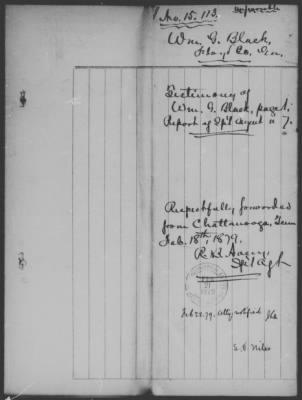 No. 15.113.
Wm. G. Black,
Floyd Co. Ga.
Testimony of
Wm. G. Black, page 1.
Report of Sp'l Agent " 7.
Respectfully forwarded
from Chattanooga, Tenn
Feb. 18th, 1879.
Sp'l Agt.
Feb 22. 79. Atty notified
E. C. Niles